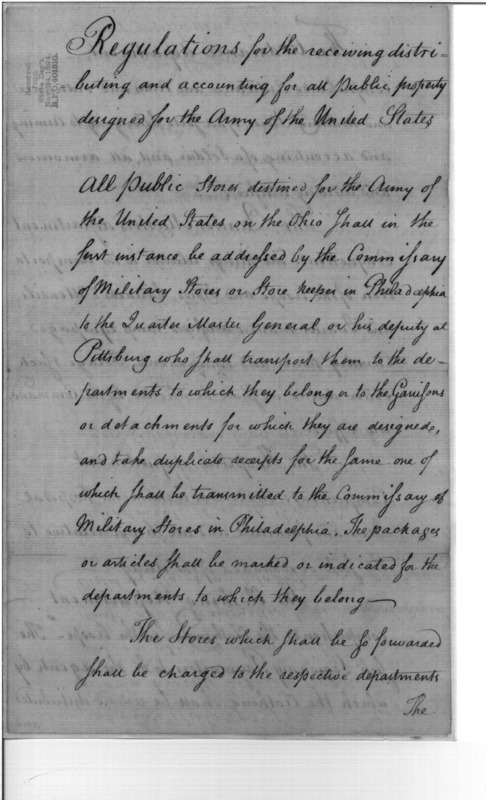 Regulations for the receiving distri-
buting and accounting for all Public property
designed for the Army of the United States
All Public Stores destined for the Army of
the United States on the Ohio shall in the
first instance be addressed by the Commissary
of Military Stores or Store keeper in Philadelphia
to the Quarter Master General or his deputy at
Pittsburg who shall transport them to the de-
partments to which they belong or to the Garrisons
or detachments for which they are designed,
and take duplicate receipts for the same one of
which shall be transmitted to the Commissary of
Military Stores in Philadelphia. The packages
or articles shall be marked or indicated for the
departments to which they belong—
The Stores which shall be so forwarded
shall be charged to the respective departments
The